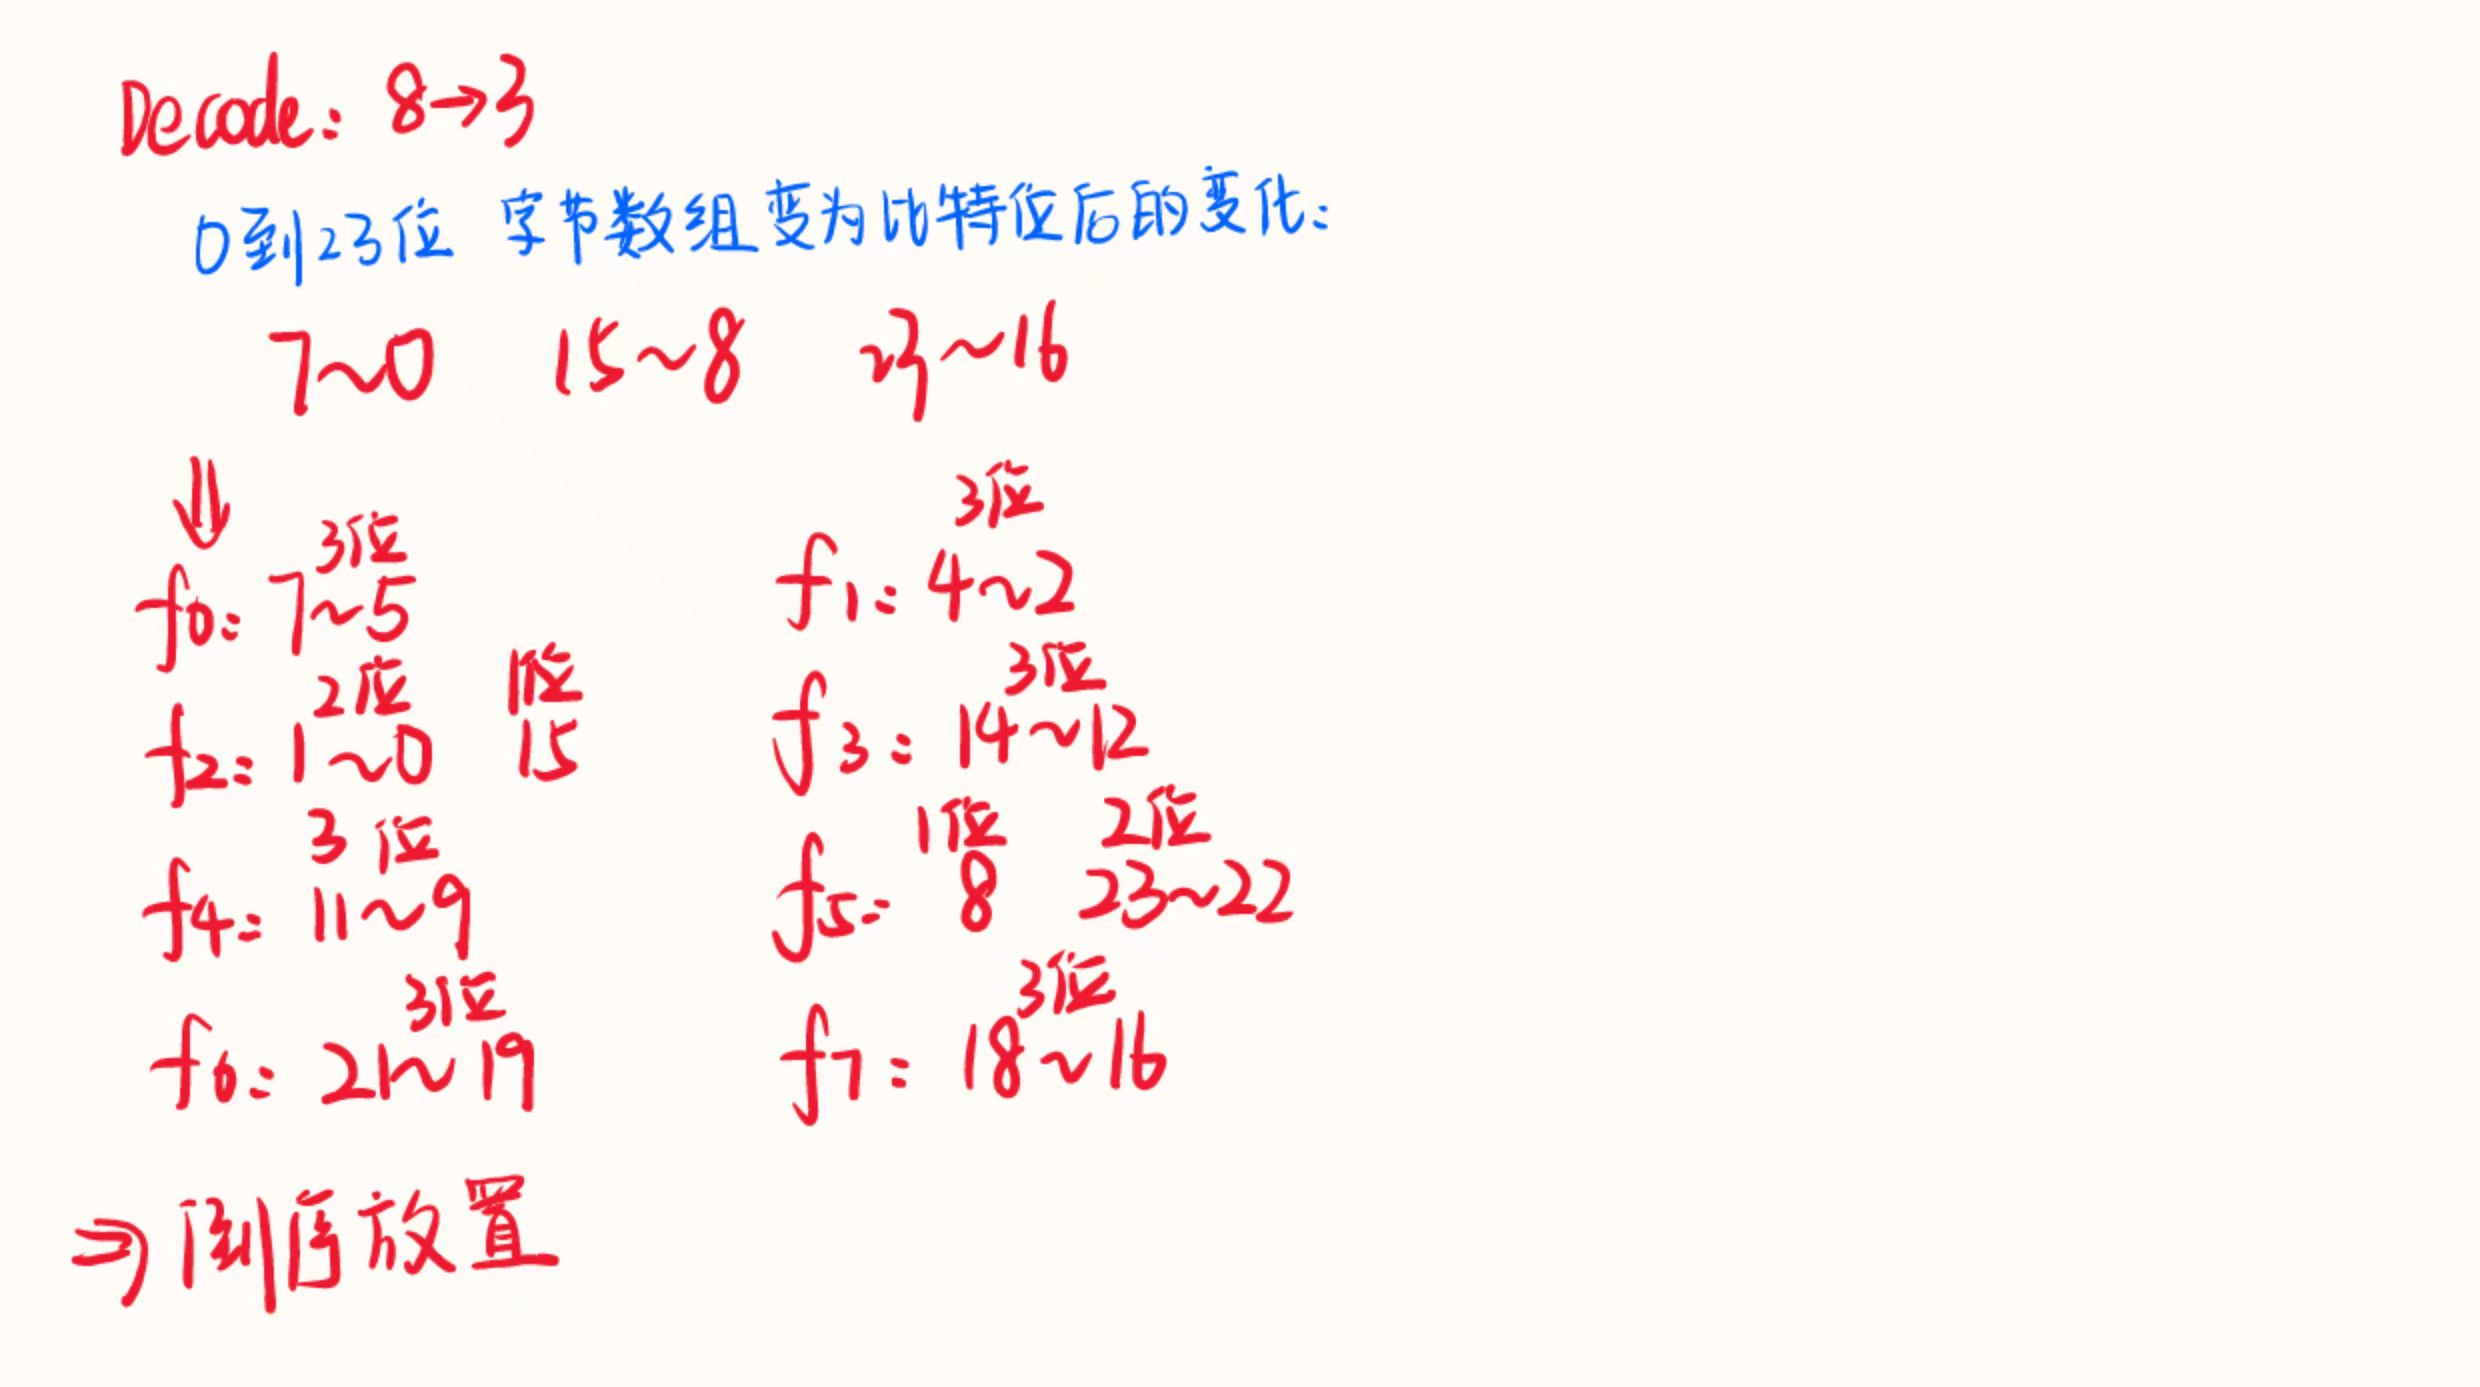 Decode: 8→3
0到23位 字节数组变为比特位后的变化:
7~0 15~8 23~16
⇓
3位 3位
f0: 7~5 f1: 4~2
2位 1位 3位
f2: 1~0 15 f3: 14~12
3位 1位 2位
f4: 11~9 f5: 8 23~22
3位 3位
f6: 21~19 f7: 18~16
⇒ 倒序放置